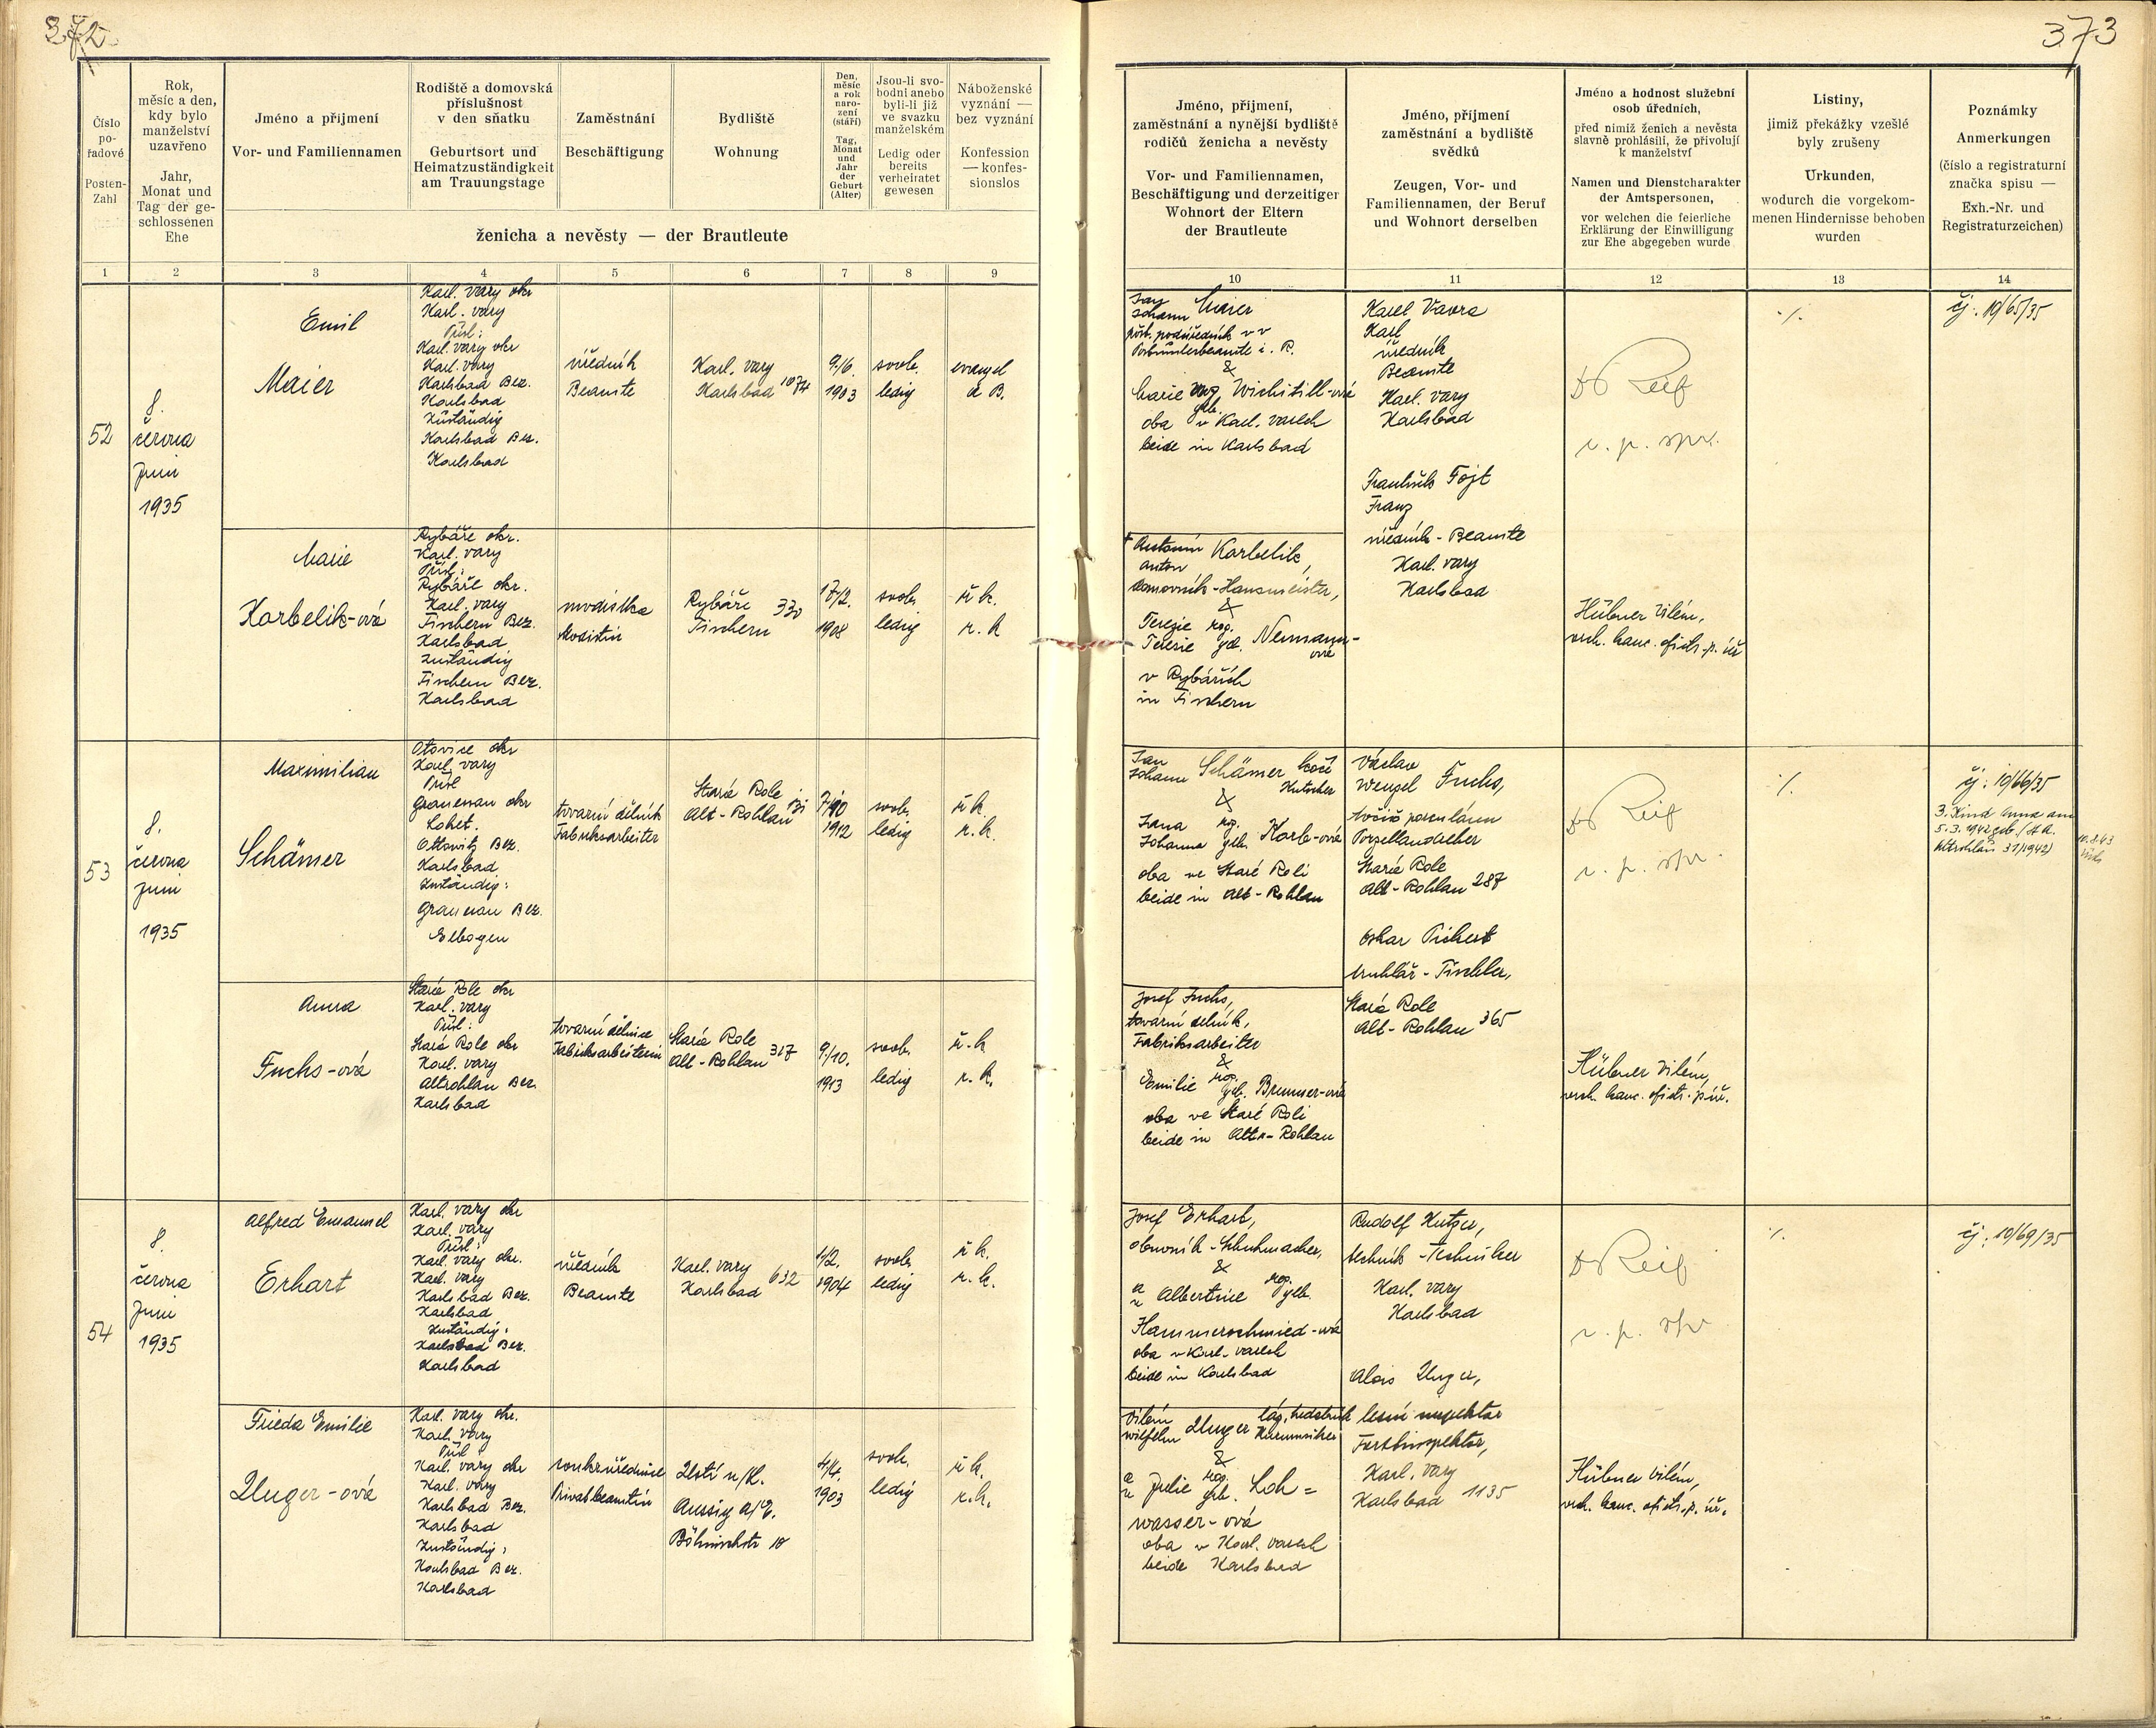 372
373
Číslo
po-
řadové
Posten-
Zahl
Rok,
měsíc a den,
kdy bylo
manželství
uzavřeno
Jahr,
Monat und
Tag der ge-
schlossenen
Ehe
Jméno a přijmení
Vor- und Familiennamen
Rodiště a domovská
příslušnost
v den sňatku
Geburtsort und
Heimatzuständigkeit
am Trauungstage
Zaměstnání
Beschäftigung
Bydliště
Wohnung
Den,
měsíc
a rok
naro-
zení
(stáří)
Tag,
Monat
und
Jahr
der
Geburt
(Alter)
Jsou-li svo-
bodni anebo
byli-li již
ve svazku
manželském
Ledig oder
bereits
verheiratet
gewesen
Náboženské
vyznání —
bez vyznání
Konfession
— konfes-
sionslos
ženicha a nevěsty — der Brautleute
Jméno, přijmení,
zaměstnání a nynější bydliště
rodičů ženicha a nevěsty
Vor- und Familiennamen,
Beschäftigung und derzeitiger
Wohnort der Eltern
der Brautleute
Jméno, přijmení
zaměstnání a bydliště
svědků
Zeugen, Vor- und
Familiennamen, der Beruf
und Wohnort derselben
Jméno a hodnost služební
osob úředních,
před nimiž ženich a nevěsta
slavně prohlásili, že přivolují
k manželství
Namen und Dienstcharakter
der Amtspersonen,
vor welchen die feierliche
Erklärung der Einwilligung
zur Ehe abgegeben wurde
Listiny,
jimiž překážky vzešlé
byly zrušeny
Urkunden,
wodurch die vorgekom-
menen Hindernisse behoben
wurden
Poznámky
Anmerkungen
(číslo a registraturní
značka spisu —
Exh.-Nr. und
Registraturzeichen)
1 2 3 4 5 6 7 8 9 10 11 12 13 14
52
8.
června
Juni
1935
Emil
Maier
Karl. vary okr
Karl. vary
Přísl:
Karl. vary okr
Karl. vary
Karlsbad Bez.
Karlsbad
Zuständig
Karlsbad Bez.
Karlsbad
úředník
Beamte
Karl. vary
Karlsbad 1074
9/6.
1903
svob.
ledig
evangel
a B.
Jan
Johann Maier
pošt. podúředník v v
Postunterbeamte i. R.
&
Marie roz. Wichitill-ová
geb.
oba v Karl. varech
beide in Karlsbad
Karel Vavra
Karl
úředník
Beamte
Karl. vary
Karlsbad
František Fojt
Franz
úředník - Beamte
Karl. vary
Karlsbad
Dr Reif
r. p. spr.
Hübner Vilém,
vrch. kanc. ofici. p. úř
%
čj: 10/65/35
Marie
Karbelik-ová
Rybáře okr.
Karl. vary
Přísl:
Rybáře okr.
Karl. vary
Fischern Bez.
Karlsbad
zuständig
Fischern Bez.
Karlsbad
modistka
Modistin
Rybáře 330
Fischern
17/2.
1908
svob.
ledig
ř. k.
r. k
† Antonín Karbelik,
Anton
domovník - Hausmeister,
&
Terezie roz.
Terezie geb. Neumann-
ová
v Rybářích
in Fischern
53
8.
června
Juni
1935
Maximilian
Schämer
Otovice okr
Karl. vary
Přísl
Granesau okr
Loket.
Ottowitz Bez.
Karlsbad
Zuständig:
Granesau Bez.
Elbogen
tovární dělník
Fabriksarbeiter
Stará Role
Alt-Rohlau
1912
svob.
ledig
ř. k.
r. k.
Jan
Johann Schämer kočí
Kutscher
&
Jana roz.
Johanna geb. Korb-ová
oba ve Staré Roli
beide in Alt-Rohlau
Václav
Wenzel Fuchs,
točíř porculánu
Porzellandreher
Stará Role
Alt-Rohlau 287
Oskar Pichert
truhlář - Tischler,
Stará Role
Alt-Rohlau 365
Dr Reif
r. p. spr.
Hübner Vilém,
vrch. kanc. ofici. p. úř.
%
čj: 10/66/35
3. Kind Anna am
5.3.1942 geb. (St A.
Altrohlau 31/1942)
10.8.43
Anna
Fuchs-ová
Stará Role okr
Karl. vary
Přísl:
Stará Role okr
Karl. vary
Altrohlau Bez.
Karlsbad
tovární dělnice
Fabriksarbeiterin
Stará Role
Alt-Rohlau 317
9/10.
1913
svob.
ledig
ř. k
r. k.
Josef Fuchs,
tovární dělník,
Fabriksarbeiter
&
Emilie roz.
geb. Brunner-ová
oba ve Staré Roli
beide in Alt-Rohlau
54
8.
června
Juni
1935
Alfred Emanuel
Erhart
Karl. vary okr
Karl. vary
Přísl:
Karl. vary okr.
Karl. vary
Karlsbad Bez.
Karlsbad
Zuständig:
Karlsbad Bez.
Karlsbad
úředník
Beamte
Karl. vary
Karlsbad 632
1/2.
1904
svob.
ledig
ř. k.
r. k.
Josef Erhart,
obuvník - Schuhmacher,
&
Albertine roz.
geb.
Hammerschmied-ová
oba v Karl. varech
beide in Karlsbad
Rudolf Kutzer,
technik - Techniker
Karl. vary
Karlsbad
Alois Unger,
lesní inspektor
Forstinspektor,
Karl. vary
Karlsbad 1135
Dr Reif
r. p. spr
Hübner Vilém,
vrch. kanc. ofici. p. úř.
%
čj: 10/69/35
Frieda Emilie
Unger-ová
Karl. vary okr.
Karl. vary
Přísl
Karl. vary okr
Karl. vary
Karlsbad Bez.
Karlsbad
Zuständig:
Karlsbad Bez.
Karlsbad
soukr. úřednice
Privatbeamtin
Ústí n/L.
Aussig a/E.
4/4.
1903
svob.
ledig
ř k.
r. k.
Vilém
Wilhelm Unger láz. hudebník
Kurmusiker
&
Julie roz.
geb. Loh=
wasser-ová
oba v Karl. varech
beide Karlsbad